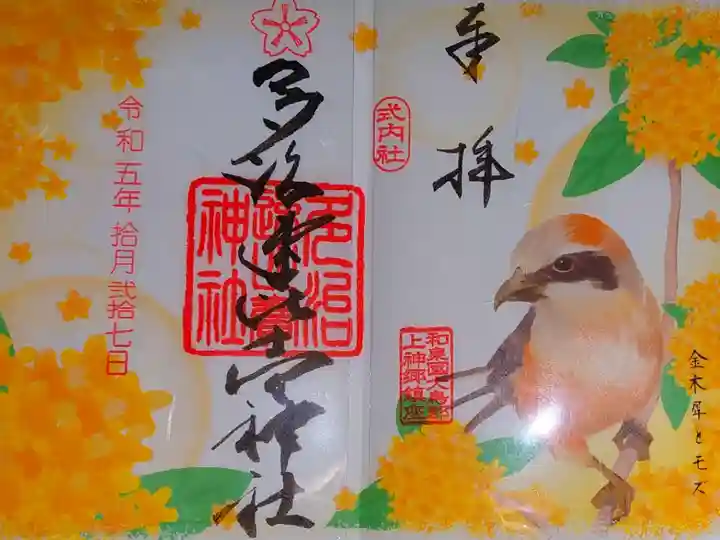 奉拝
金木犀とモズ
式内社
和泉國大鳥郡
上神郷鎮座
多治速比売神社
多治
速比賣
神社
令和五年 拾月 弐拾七日